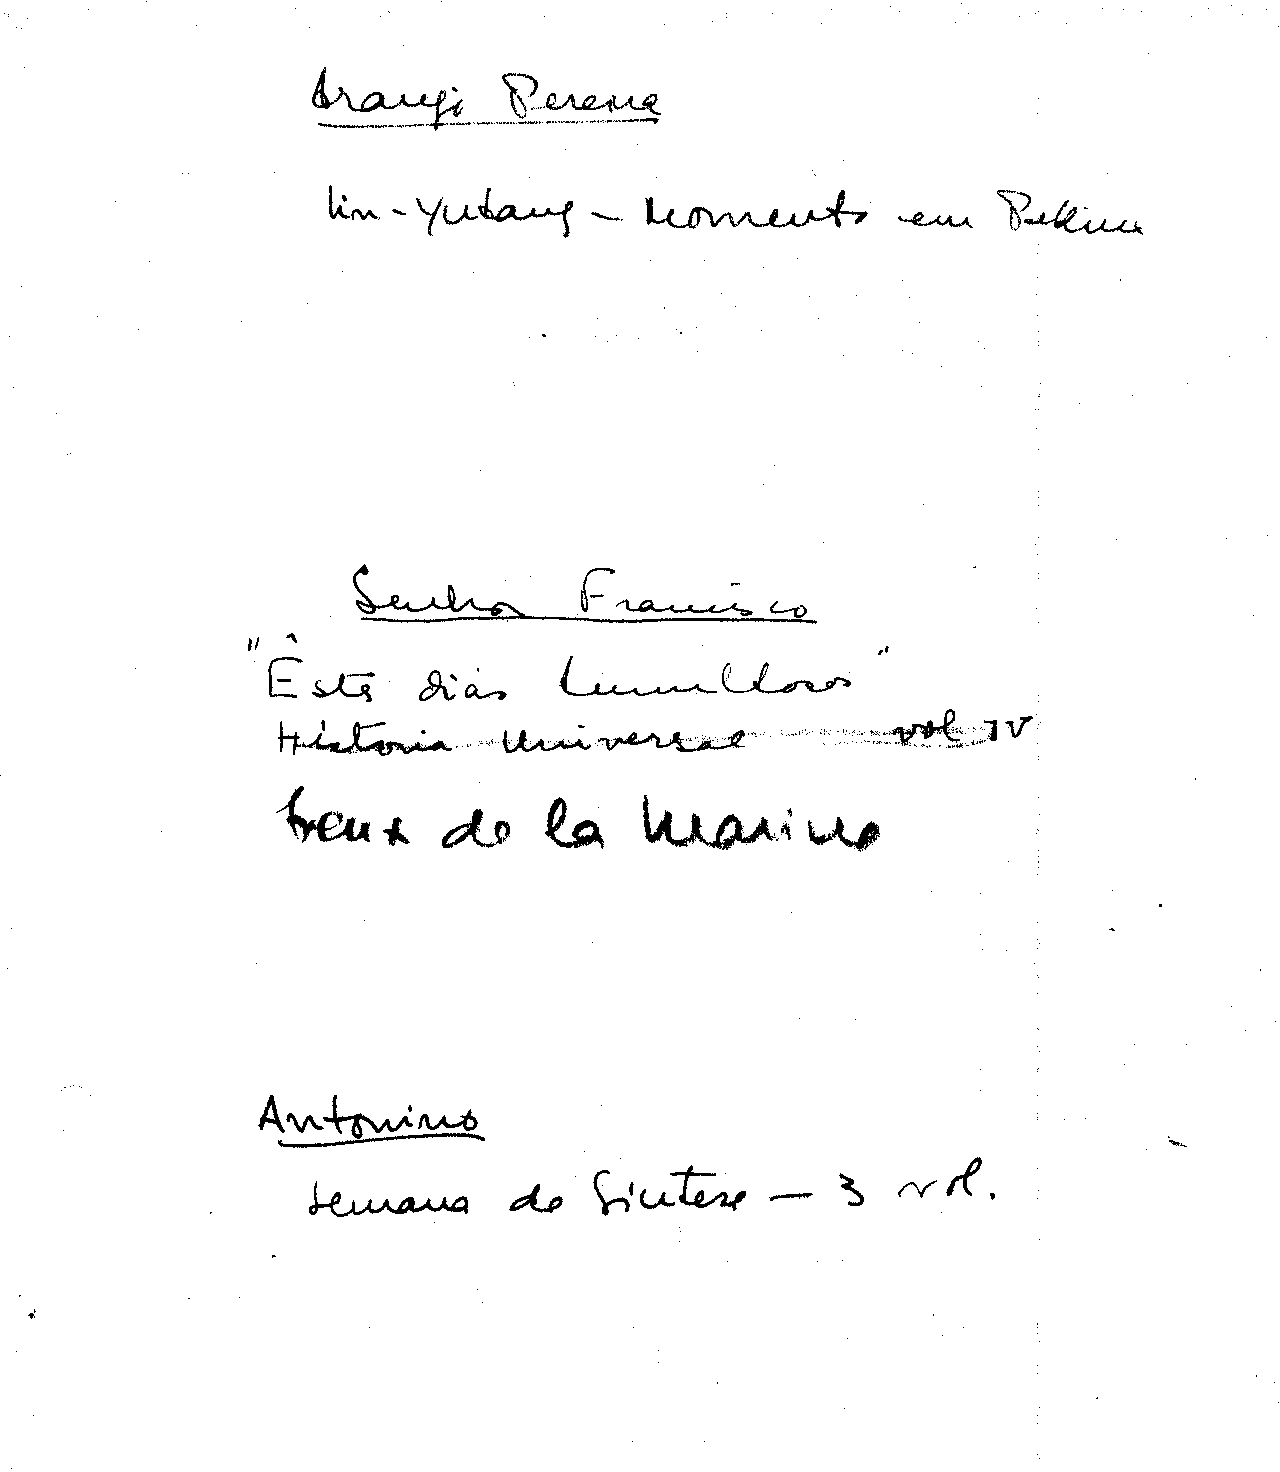 Araujo Pereira
Lin-Yutang - Momento em Pekim
Senhor Francisco
"Êstes dias tumultosos"
Historia Universal vol IV
Creux de la Marine
Antonino
Semana de Síntese - 3 vol.